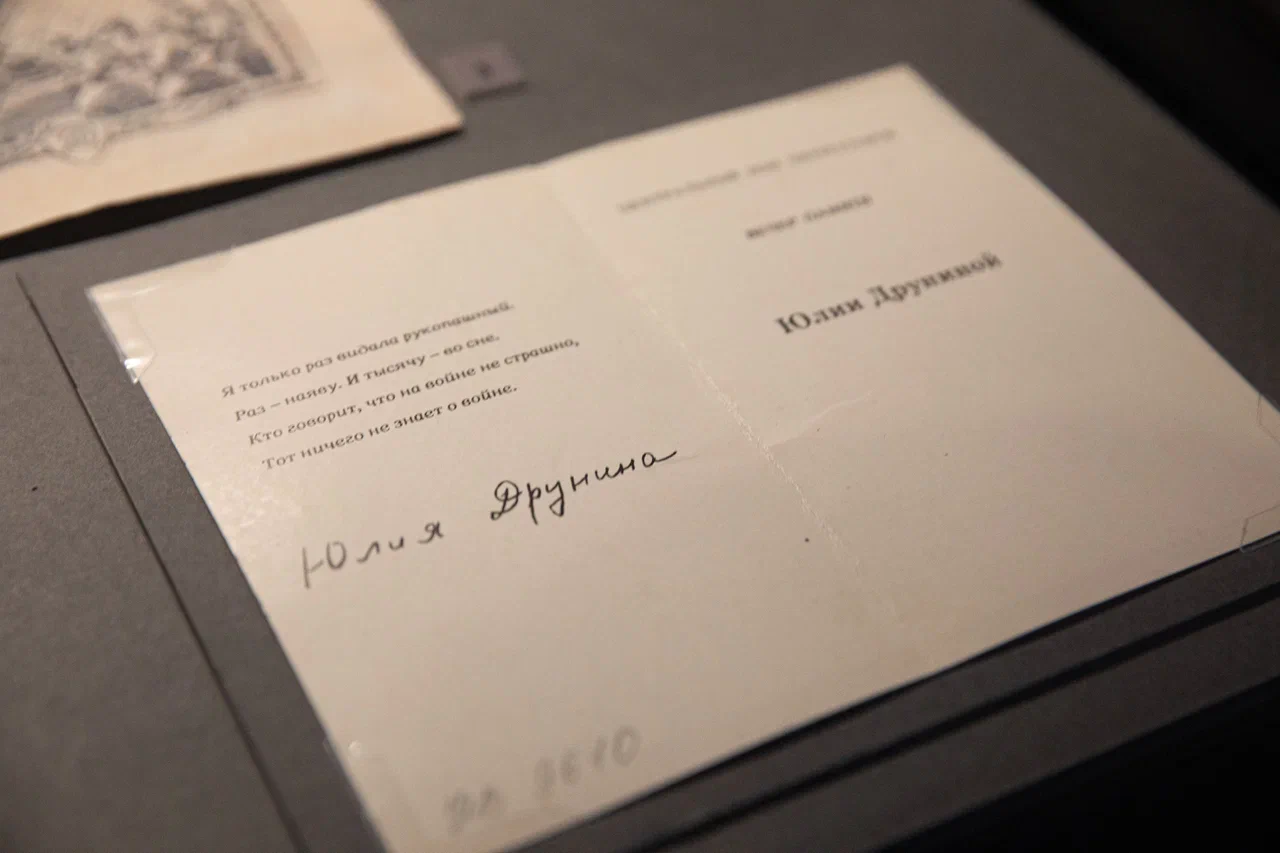 Я только раз видала рукопашный.
Раз – наяву. И тысячу – во сне.
Кто говорит, что на войне не страшно,
Тот ничего не знает о войне.
Юлия Друнина
ЦЕНТРАЛЬНЫЙ ДОМ ЛИТЕРАТОРОВ
ВЕЧЕР ПАМЯТИ
Юлии Друниной